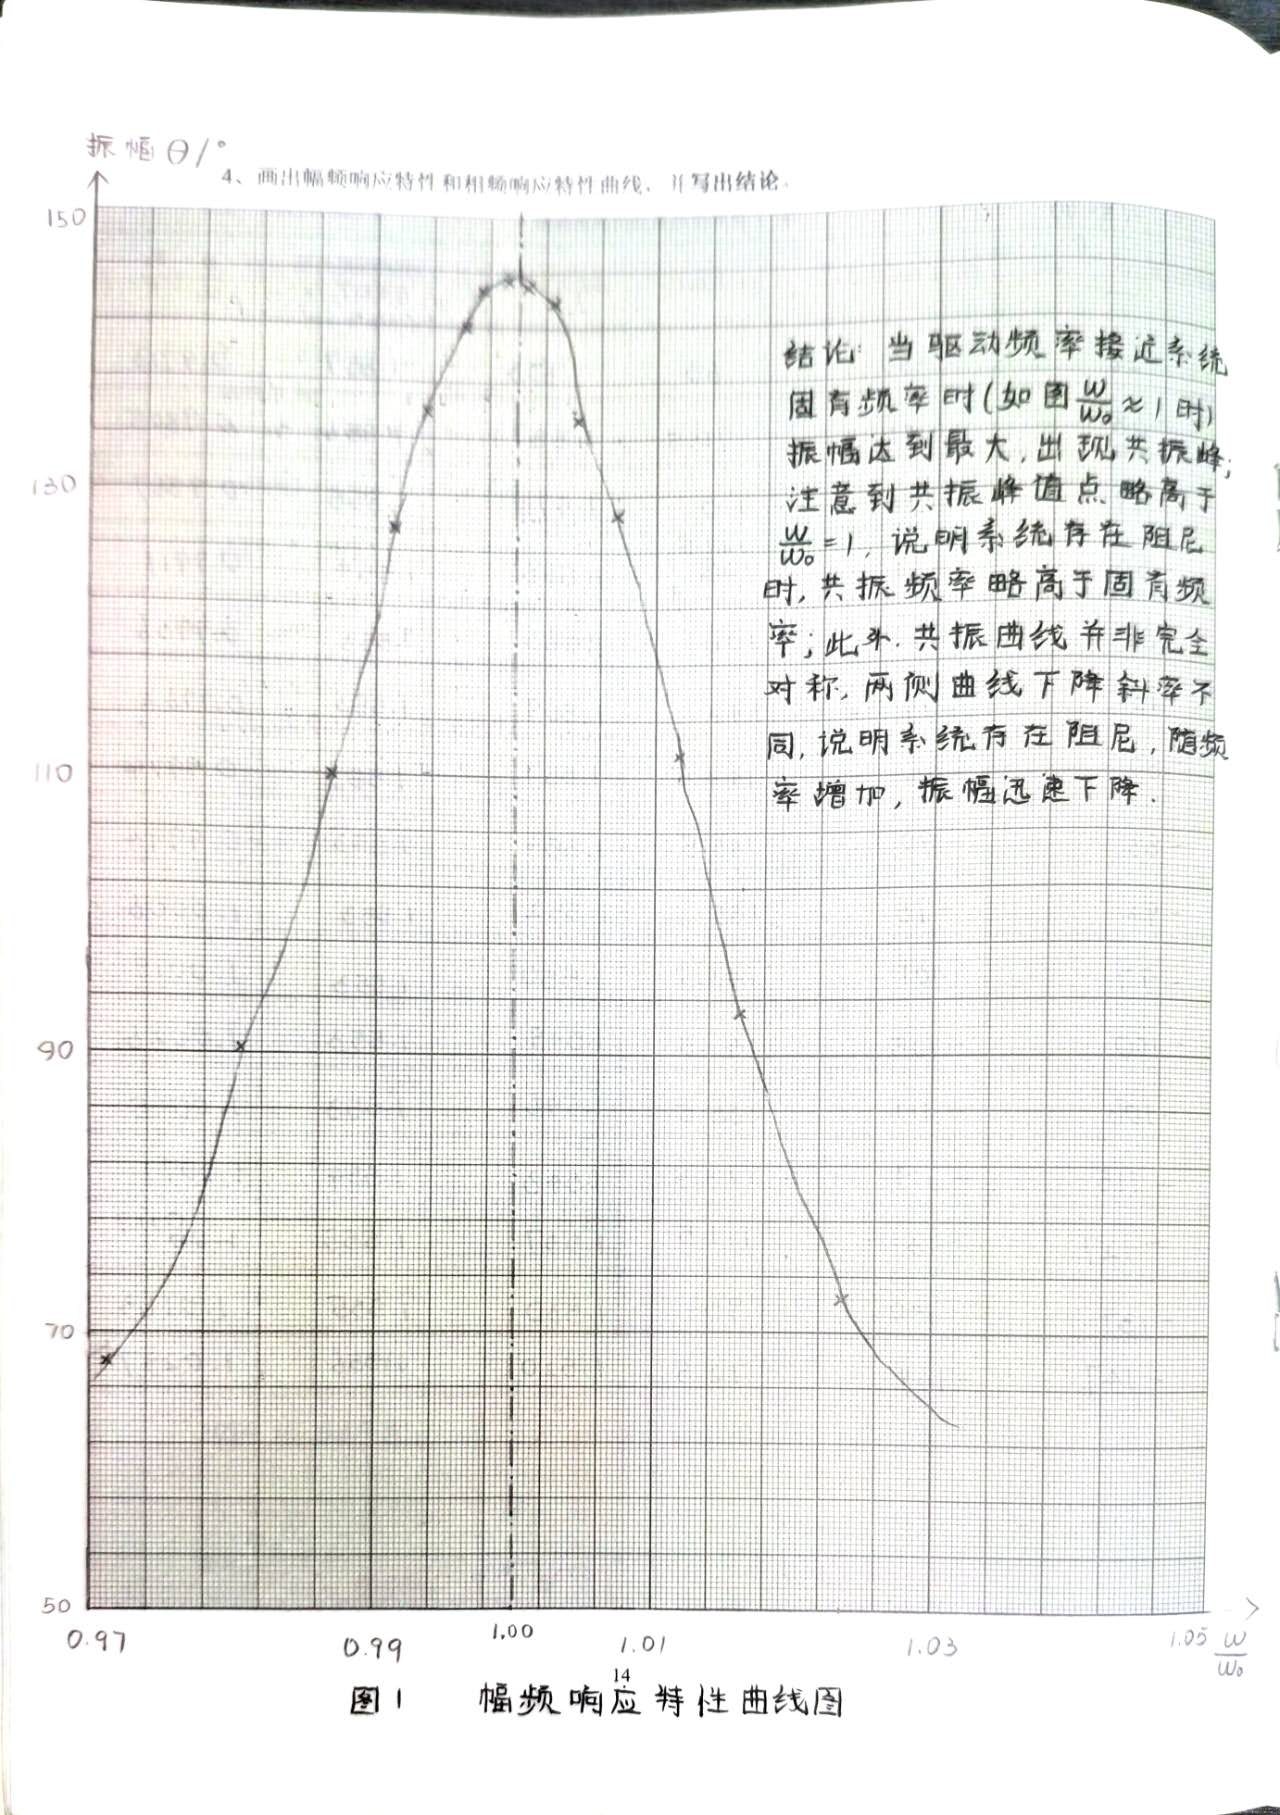 振幅θ/°
4、画出幅频响应特性和相频响应特性曲线，并写出结论。
150
130
110
90
70
50
结论: 当驱动频率接近系统
固有频率时(如图ω/ω₀≈1时)
振幅达到最大,出现共振峰;
注意到共振峰值点略高于
ω/ω₀=1,说明系统存在阻尼
时,共振频率略高于固有频
率;此外.共振曲线并非完全
对称,两侧曲线下降斜率不
同,说明系统存在阻尼,随频
率增加,振幅迅速下降.
0.97 0.99 1.00 1.01 1.03 1.05 ω/ω₀
14
图1 幅频响应特性曲线图